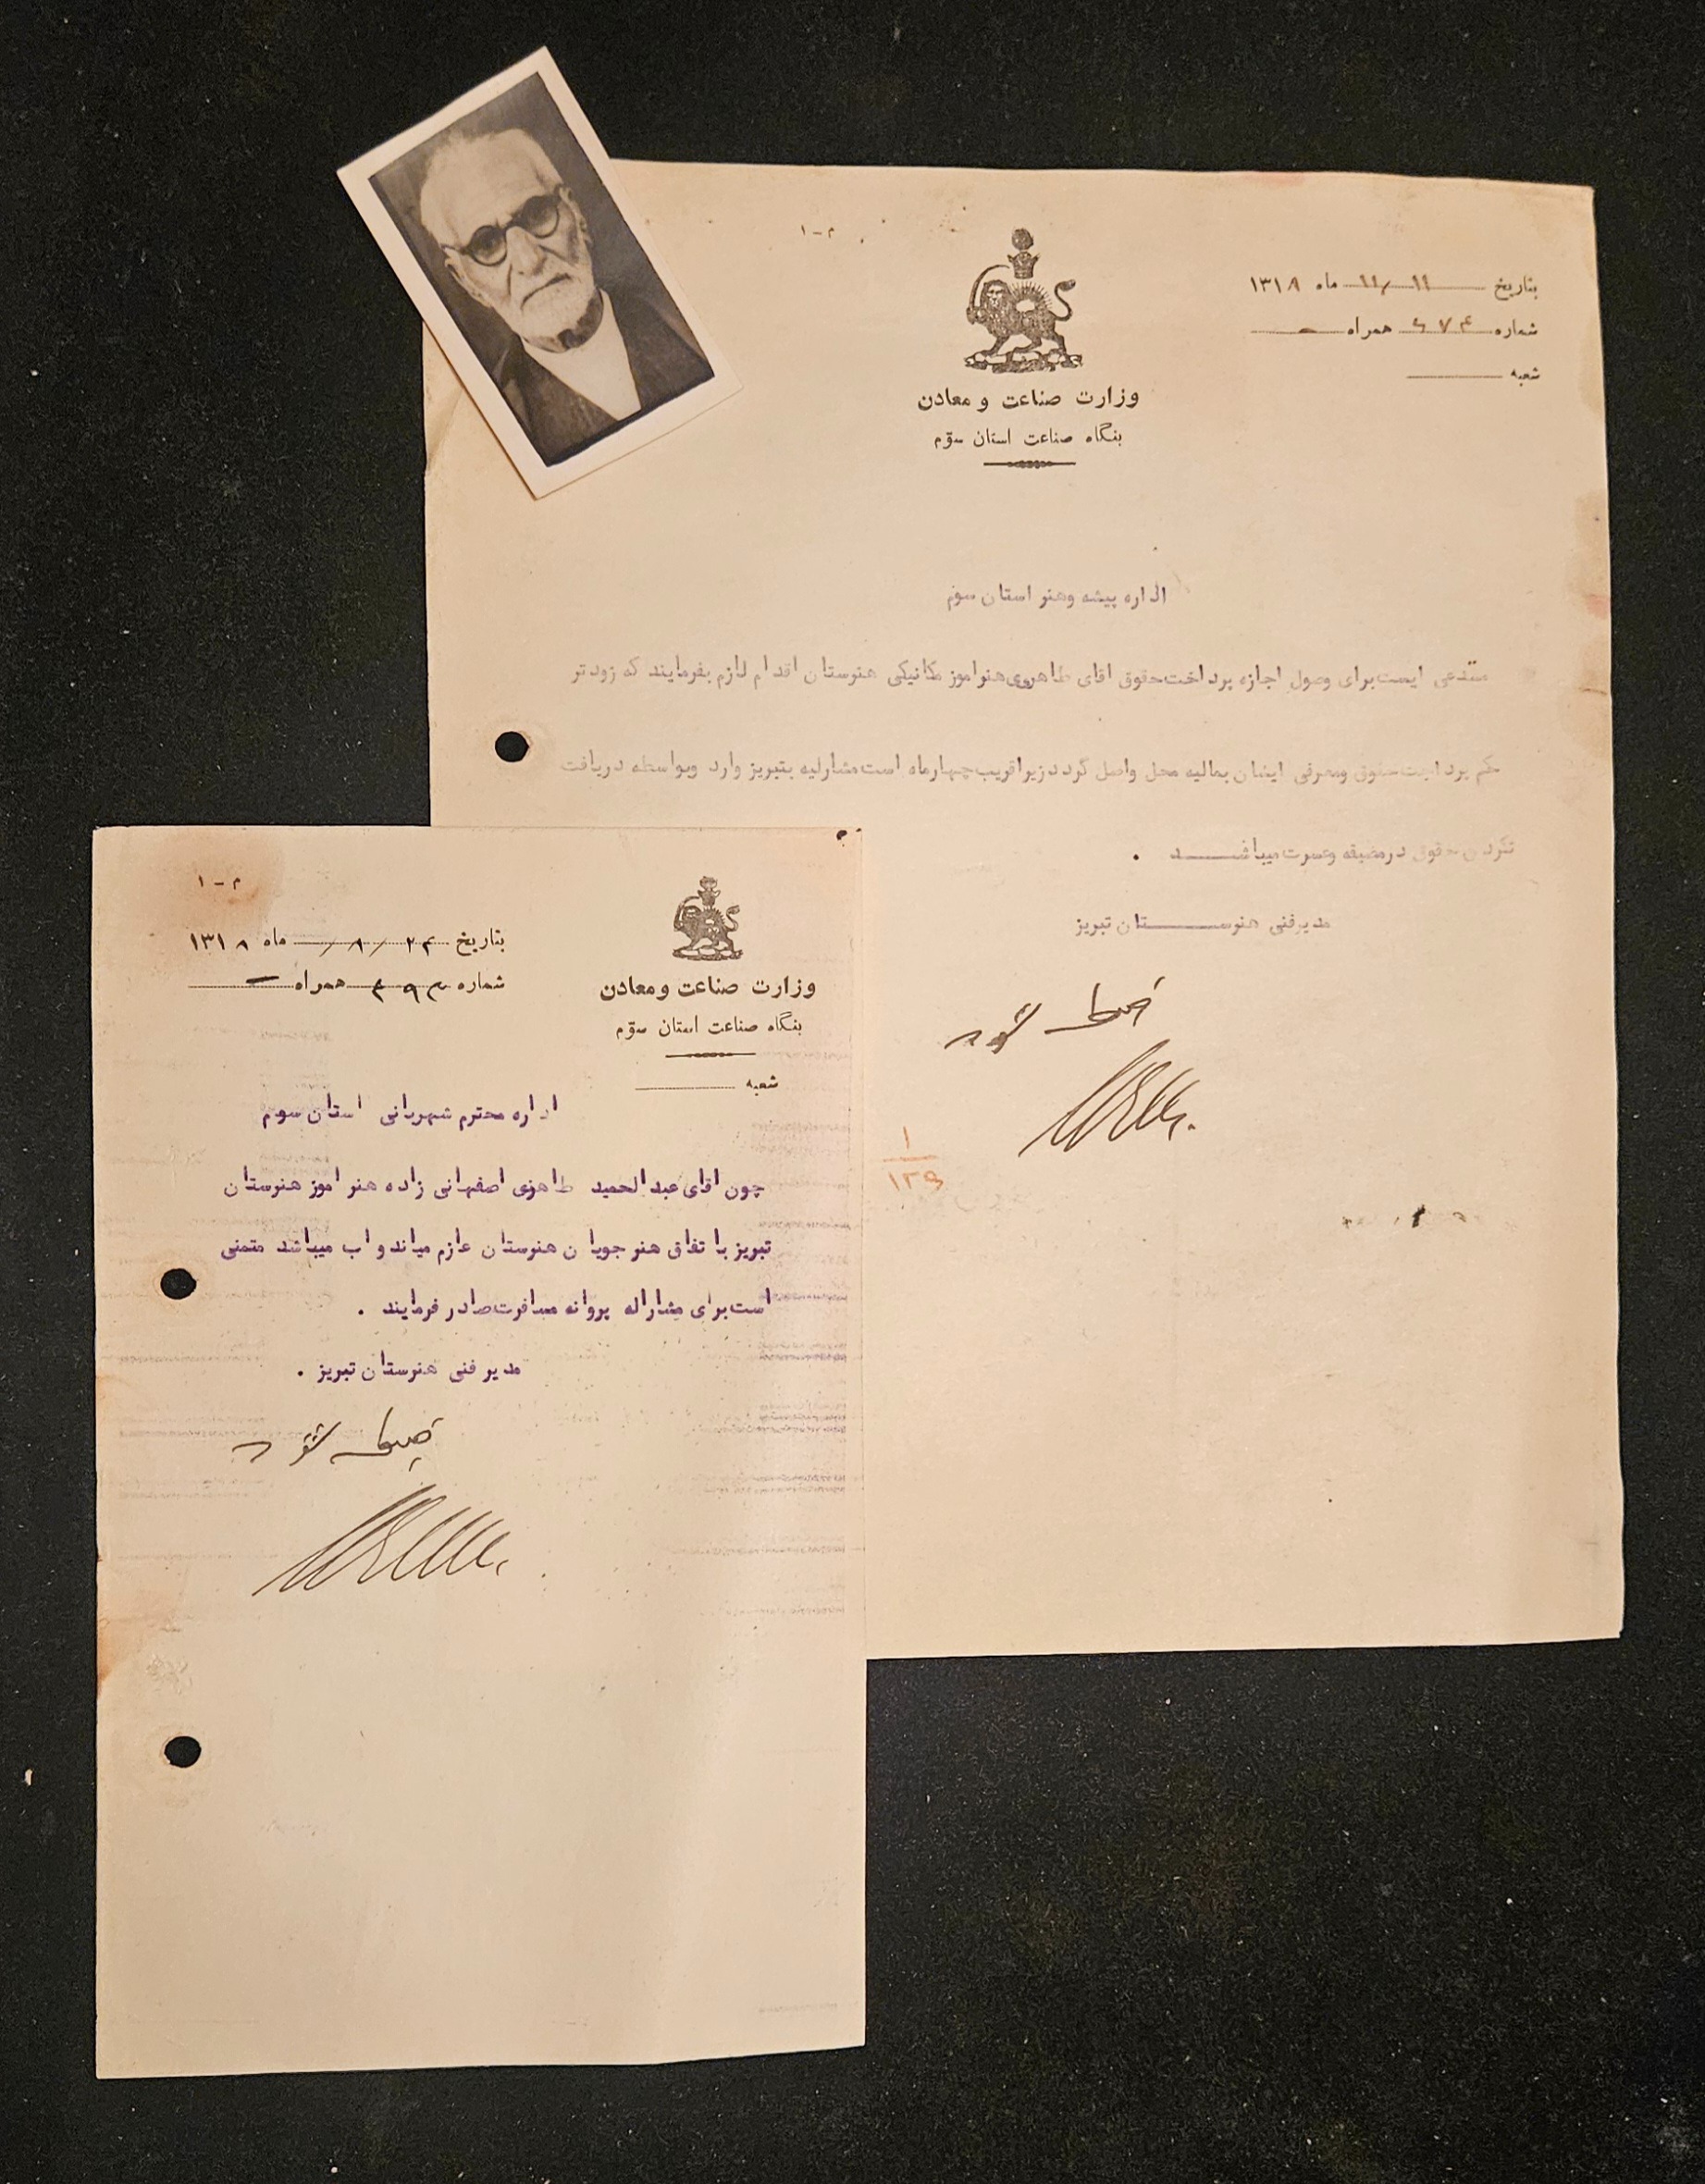 م - ۱
بتاریخ ۱۱/۱۱ ماه ۱۳۱۸
شماره ۶۷۴ همراه —
شعبه
وزارت صناعت و معادن
بنگاه صناعت استان سوّم
اداره پیشه وهنر استان سوم
متدعی ایست برای وصول اجازه پرداخت حقوق اقای طاهروی هنراموز مکانیکی هنرستان اقدام لازم بفرمایند که زودتر
حکم پرداخت حقوق ومعرفی ایشان بمالیه محل واصل گردد زیرا قریب چهارماه است مشارلیه بتبریز وارد وبواسطه دریافت
نکردن حقوق درمضیقه وعسرت میباشد .
مدیرفنی هنرستان تبریز
ضبط شود
۱
۱۲۹
م - ۱
بتاریخ ۲۴/ ۸/ ماه ۱۳۱۸
شماره ۴۹۳ همراه —
وزارت صناعت ومعادن
بنگاه صناعت استان سوّم
شعبه
اداره محترم شهربانی استان سوم
چون اقای عبدالحمید طاهزی اصفهانی زاده هنراموز هنرستان
تبریز با تفاق هنرجویان هنرستان عازم میاندواب میباشد متمنی
است برای مشاراله پروانه مسافرت صادر فرمایند .
مدیر فنی هنرستان تبریز .
ضبط شود